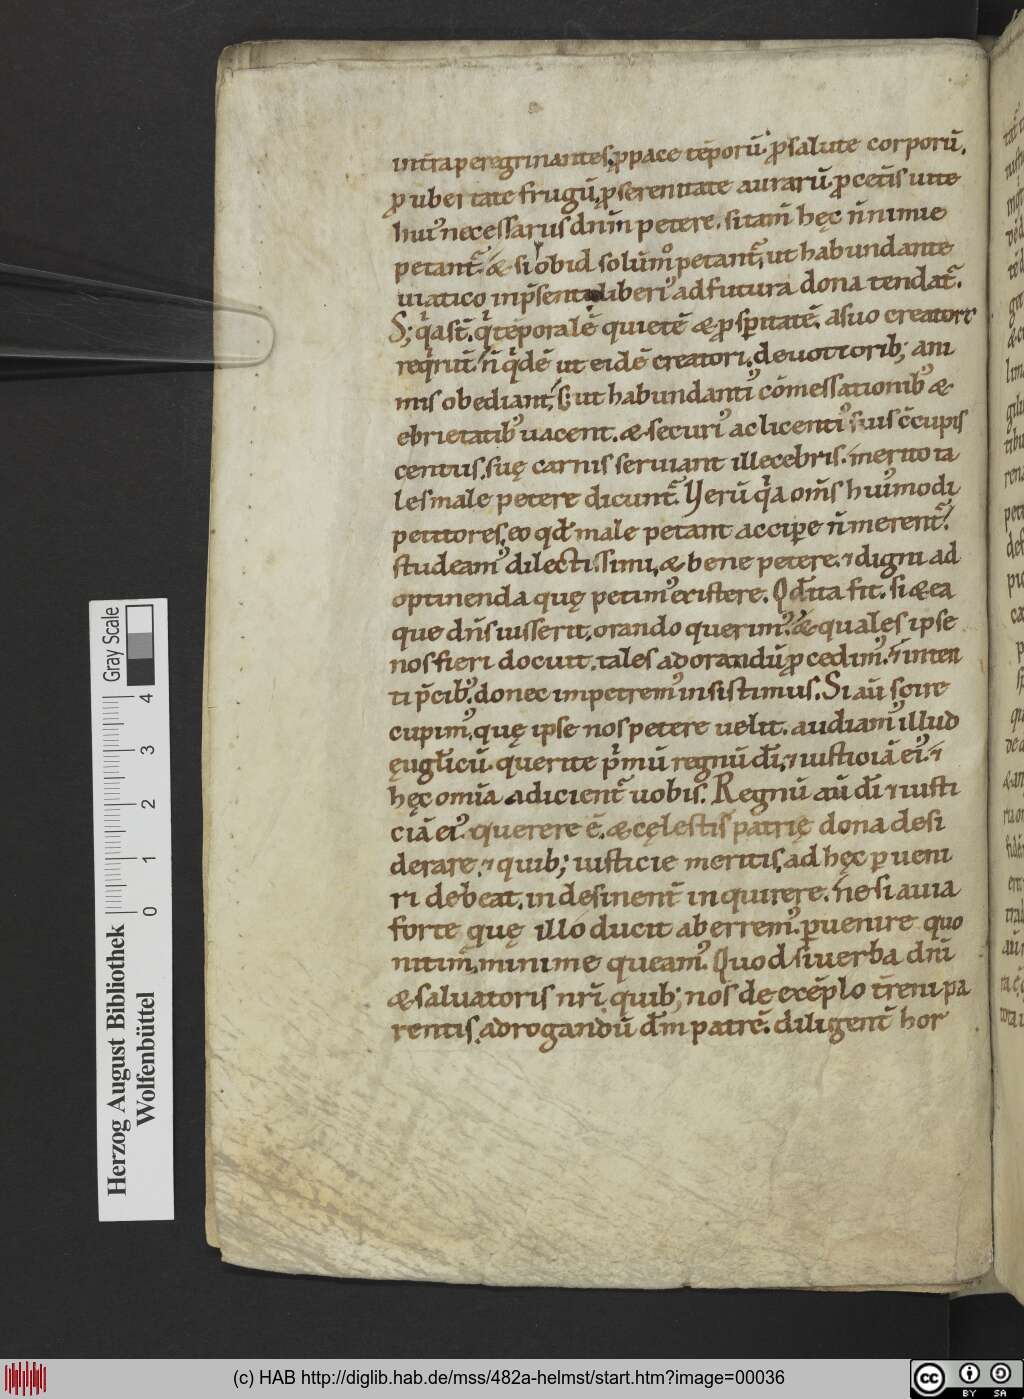 intra peregrinantes, p pace tēporū. ꝓ salute corporū,
ꝓ ubertate frugū, ꝓ serenitate aurarū. ꝓ cet̄is uitę
hui᷒ necessariis dn̄m petere. si tam̄ hęc n̄ nimie
petant᷑. & si ob id solūm᷒ petant᷑, ut habundante
uiatico in p̄senti liberi᷒ ad futura dona tendat᷑.
S; q̇a st̄. q̇ tēporalē quietē & ꝓsꝑitatē. a suo creatore
req̇rūt. n̄ q̇dē ut eidē creatori, deuotiorib; ani
mis obediant, s; ut habundanti᷒ cōmessationib᷒ &
ebrietatib᷒ uacent. & securi᷒ ac licenti᷒ suis c̄cupis
centiis, suę carnis seruiant illecebris. merito ta
les male petere dicunt᷑. Verū q̇a om̄s hui᷒modi
petitores, eo qđ male petant accipe n̄ merent᷑.
studeam᷒ dilectissimi, & bene petere. ⁊ digni ad
optinenda quę petim᷒ existere. Qđ ita fit. si & ea
que dn̄s iusserit, orando querim᷒. & quales ipse
nos fieri docuit. tales ad orandū ꝓcedim᷒. ⁊ inten
ti p̄cib᷒, donec impetrem᷒ insistimus. Si aū scire
cupim᷒, quę ipse nos petere uelit. audiam᷒ illud
ęugl̄icū. querite ṗmū regnū dī, ⁊ iusticiā ei᷒. ⁊
hęc omīa adicient᷑ uobis. Regnū aū dī ⁊ iusti
ciā ei᷒ querere ē. & cęlestis patrię dona desi
derare. ⁊ quib; iusticie meritis, ad hęc ꝑueni
ri debeat, indesinent̄ inquirere. ne si a uia
forte quę illo ducit aberrem᷒. ꝑuenire quo
nitim᷒, minime queam᷒. Quod si uerba dn̄i
& saluatoris nr̄i, quib; nos de exēplo t̄reni pa
rentis, ad rogandū dm̄ patrē. diligent̄ hor
Gray Scale
4
3
2
1
0
Herzog August Bibliothek
Wolfenbüttel
(c) HAB http://diglib.hab.de/mss/482a-helmst/start.htm?image=00036
cc BY SA